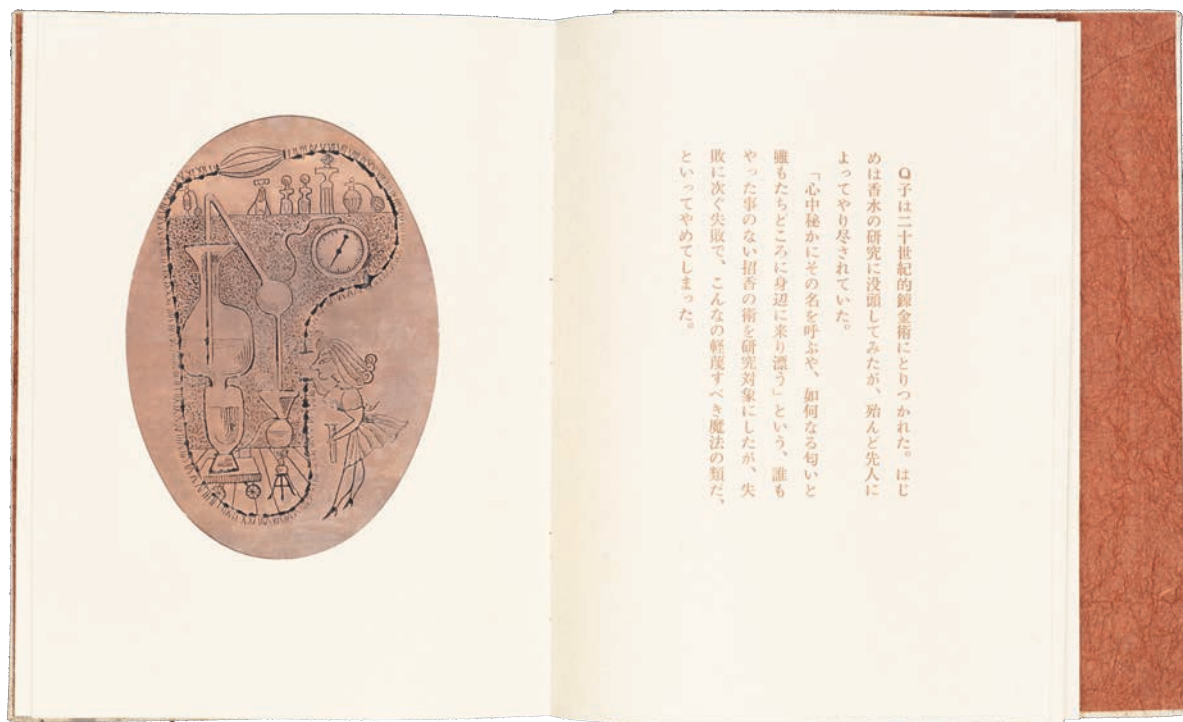 Q子は二十世紀的錬金術にとりつかれた。はじ
めは香水の研究に没頭してみたが、殆んど先人に
よってやり尽されていた。
「心中秘かにその名を呼ぶや、如何なる匂いと
雖もたちどころに身辺に来り漂う」という、誰も
やった事のない招香の術を研究対象にしたが、失
敗に次ぐ失敗で、こんなの軽蔑すべき魔法の類だ、
といってやめてしまった。